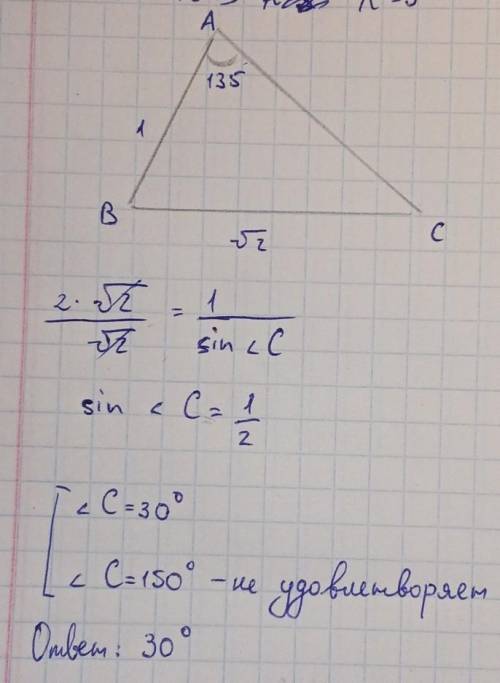 A
135
1
B
√2
C
2·√2/√2 = 1/sin<C
sin < C = 1/2
< C = 30°
< C = 150° - не удовлетворяет
Ответ: 30°